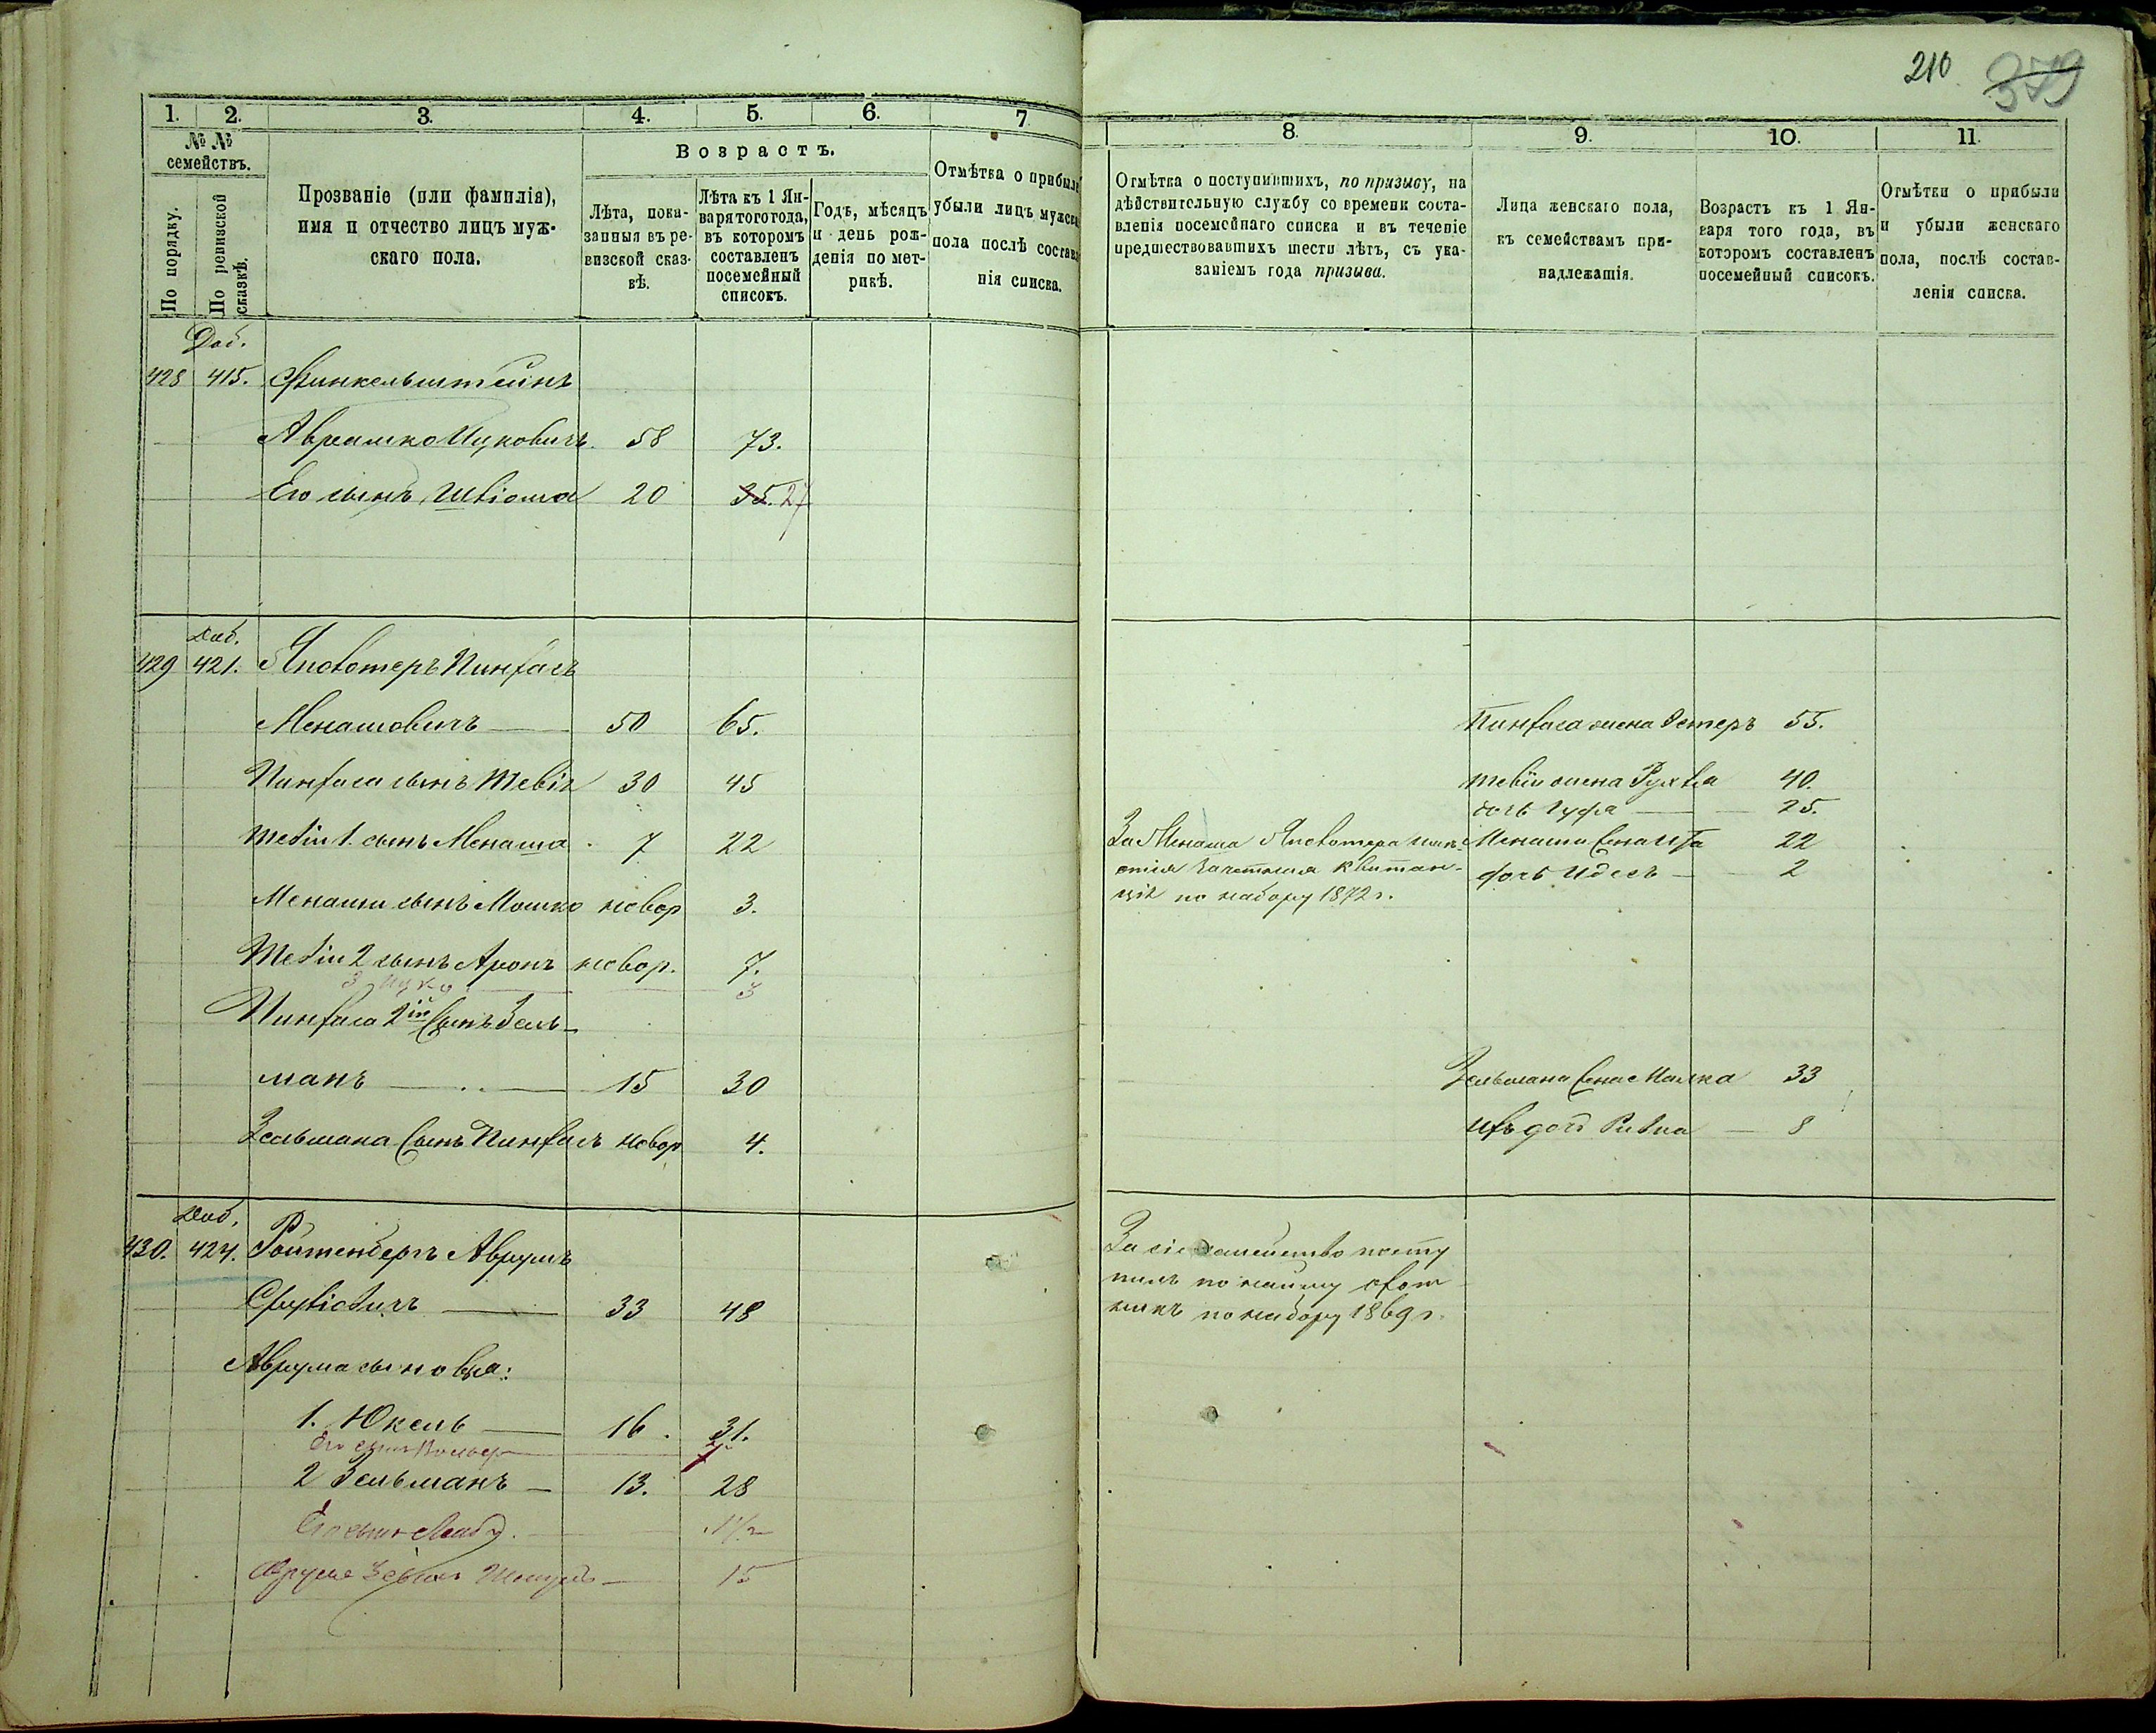 210 379
1. 2. 3. 4. 5. 6. 7
№ № семействъ.
По порядку.
По ревизской сказкѣ.
Прозваніе (или фамилія),
имя и отчество лицъ муж-
скаго пола.
Возрастъ.
Лѣта, пока-
занныя въ ре-
визской сказ-
кѣ.
Лѣта къ 1 Ян-
варя того года,
въ которомъ
составленъ
посемейный
списокъ.
Годъ, мѣсяцъ
и день рож-
денія по мет-
рикѣ.
Отмѣтка о прибыли
убыли лицъ мужска
пола послѣ составле
нія списка.
8. 9. 10. 11.
Отмѣтка о поступившихъ, по призыву, на
дѣйствительную службу со времени соста-
вленія посемейнаго списка и въ теченіе
предшествовавшихъ шести лѣтъ, съ ука-
заніемъ года призыва.
Лица женскаго пола,
къ семействамъ при-
надлежащія.
Возрастъ къ 1 Ян-
варя того года, въ
которомъ составленъ
посемейный списокъ.
Отмѣтки о прибыли
и убыли женскаго
пола, послѣ состав-
ленія списка.
Доб.
428 415. Финкельштейнъ
Аврашко Ицковичъ 58 73.
Его сынъ 20 35. 27
Доб.
429 421. Пинхасъ
Менашовичъ 50 65. Пинхаса жена Эстеръ 55.
Пинхаса сынъ Тевія 30 45 Тевіи жена Рухля 40.
дочь 25.
Тевіи 1. сынъ Менаша 7 22 За Менаша Менаши жена 22
зачетная квитан-
ція по набору 1872 г. дочь Идесъ 2
Менаши сынъ Мошко новор 3.
Тевіи 2 сынъ Аронъ новор. 7.
3 Ицко 3
Пинхаса 2й сынъ Зель-
манъ 15 30 Зельмана жена Малка 33
Зельмана сынъ Пинхасъ новор 4. ихъ дочь Ривка 8
Доб.
430. 424. Ройтенбергъ Аврумъ
33 48
За сіе семейство посту
пилъ по найму охот
никъ по набору 1869 г.
Аврума сыновья:
1. Юкель 16. 31.
Его сынъ
2 Зельманъ 13. 28
Его сынъ 1 1/2
Аврума 3 сынъ 15